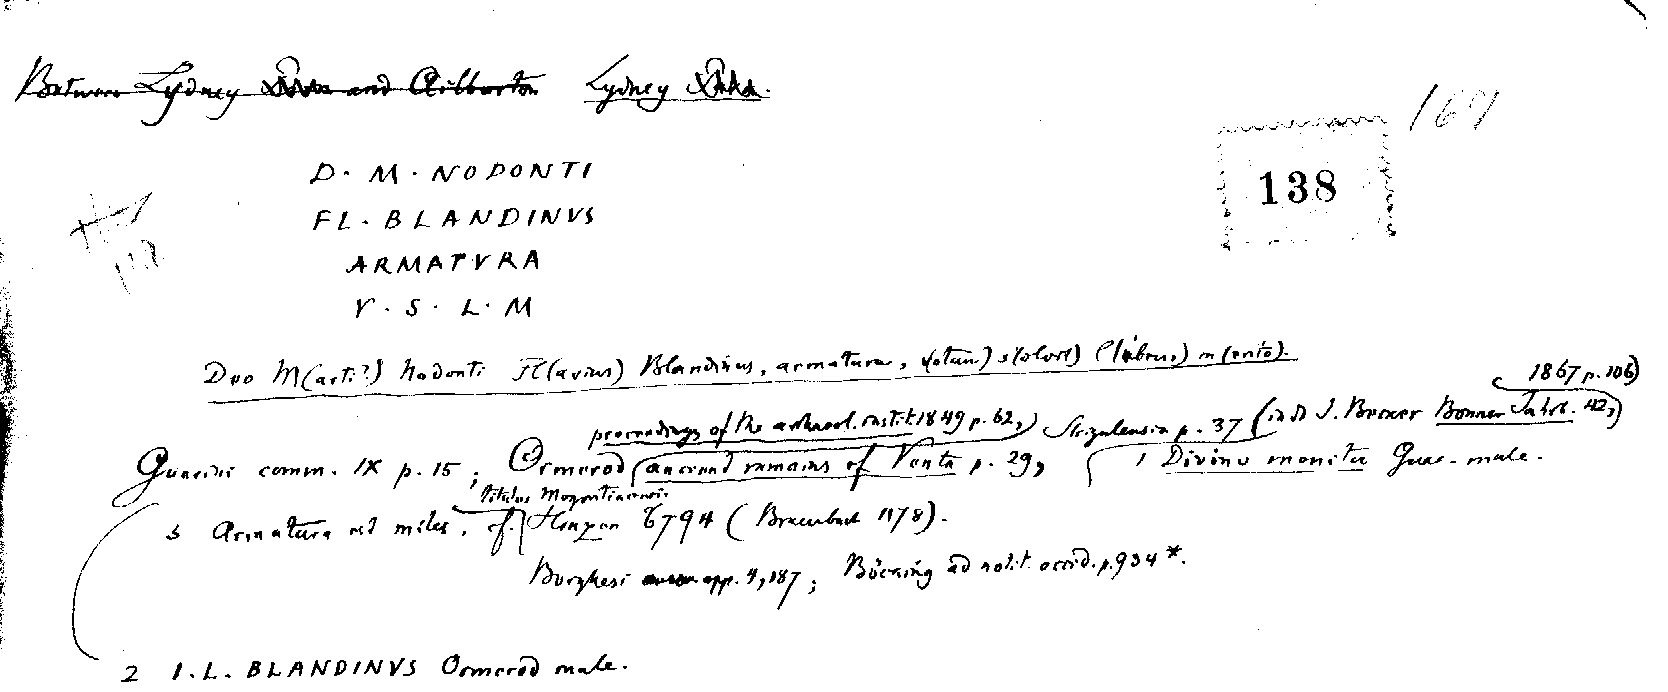 Between Lydney and Ailburton Lydney Park.
169
138
D. M. NODONTI
FL. BLANDINVS
ARMATVRA
V. S. L. M
Deo M(arti?) Nodonti Fl(avius) Blandinus, armatura, v(otum) s(olvit) l(ibens) m(erito).
1867 p. 106)
proceedings of the archaeol. instit. 1849 p. 62, Strigulensia p. 37 (inde J. Becker Bonner Jahrb. 42,
Guarini comm. IX p. 15; Ormerod ancient remains of Venta p. 29, 1 Divino monitu Guar. male.
titulus Mogontiacensis
3 Armatura est miles, cf. Henzen 6794 (Brambach 1178).
Borghesi opp. 4, 187; Böcking ad notit. occid. p. 934*.
2 I. L. BLANDINVS Ormerod male.